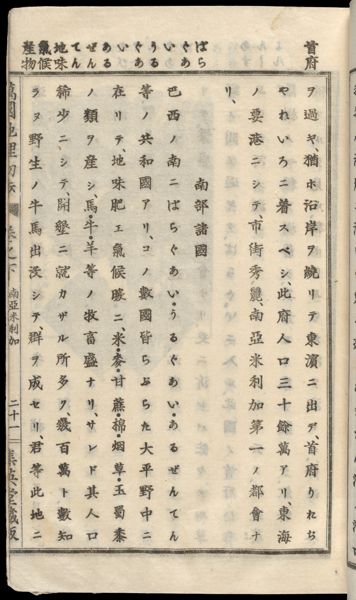 首府
ばらぐあい
うるぐあい
あるぜんてん
地味
氣候
産物
ヲ過ギ、猶ホ沿岸ヲ繞リテ東濱ニ出デ、首府りおぢ
やねいろニ着スベシ、此府人口三十餘萬アリ東海
ノ要港ニシテ、市街秀麗、南亞米利加第一ノ都會ナ
リ、
南部諸國
巴西ノ南ニばらぐあい・うるぐあい・あるぜんてん
等ノ共和國アリ、コノ數國皆らぷらた大平野中ニ
在リテ、地味肥エ氣候暖ニ、米・麥・甘蔗・棉・烟草・玉蜀黍
ノ類ヲ産シ、馬・牛・羊等ノ牧畜盛ナリ、サレド其人口
稀少ニシテ、開墾ニ就カザル所多ク、幾百萬ト數知
ラヌ野生ノ牛馬出沒シテ、群ヲ成セリ、君等此地ニ
萬國地理初歩 卷之下 南亞米利加 二十一 集英堂藏版